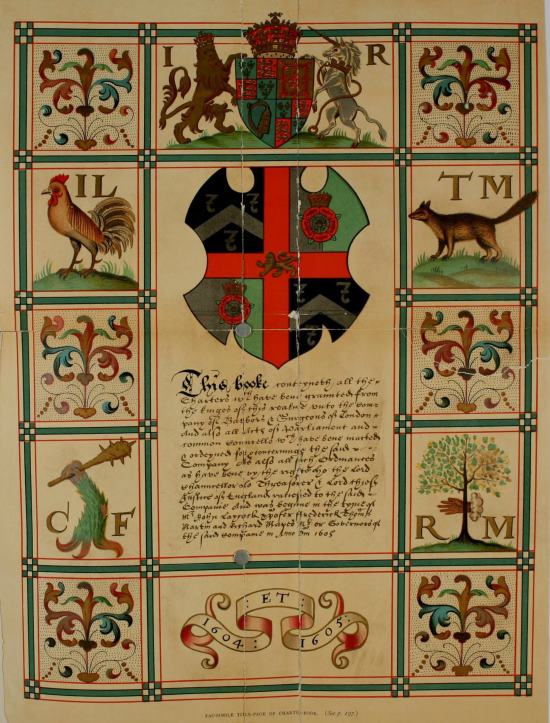 I R
IL
TM
This booke conteyneth all the
Charters wch have bene graunted from
the kinges of this realme unto the Com-
pany of Barbors & Surgeons of London
And also all Acts of Parliament and
common Counsells wch have bene made
& ordeyned for & concerninge the said
Company As also all such Ordinances
as have bene by the right the Lord
Chancellor Lo Threasorer & Lord chief
Justice of England ratefied to the said
Companie And was begune in the tyme of
Mr John Laycock Frederick Thoms
Martin and Richard Mapes Mr or Governors of
the said Companie in Ano Dm 1605
C F
R M
: ET :
1604 : : 1605 :
FACSIMILE TITLE-PAGE OF CHARTER-BOOK. (See p. 197.)